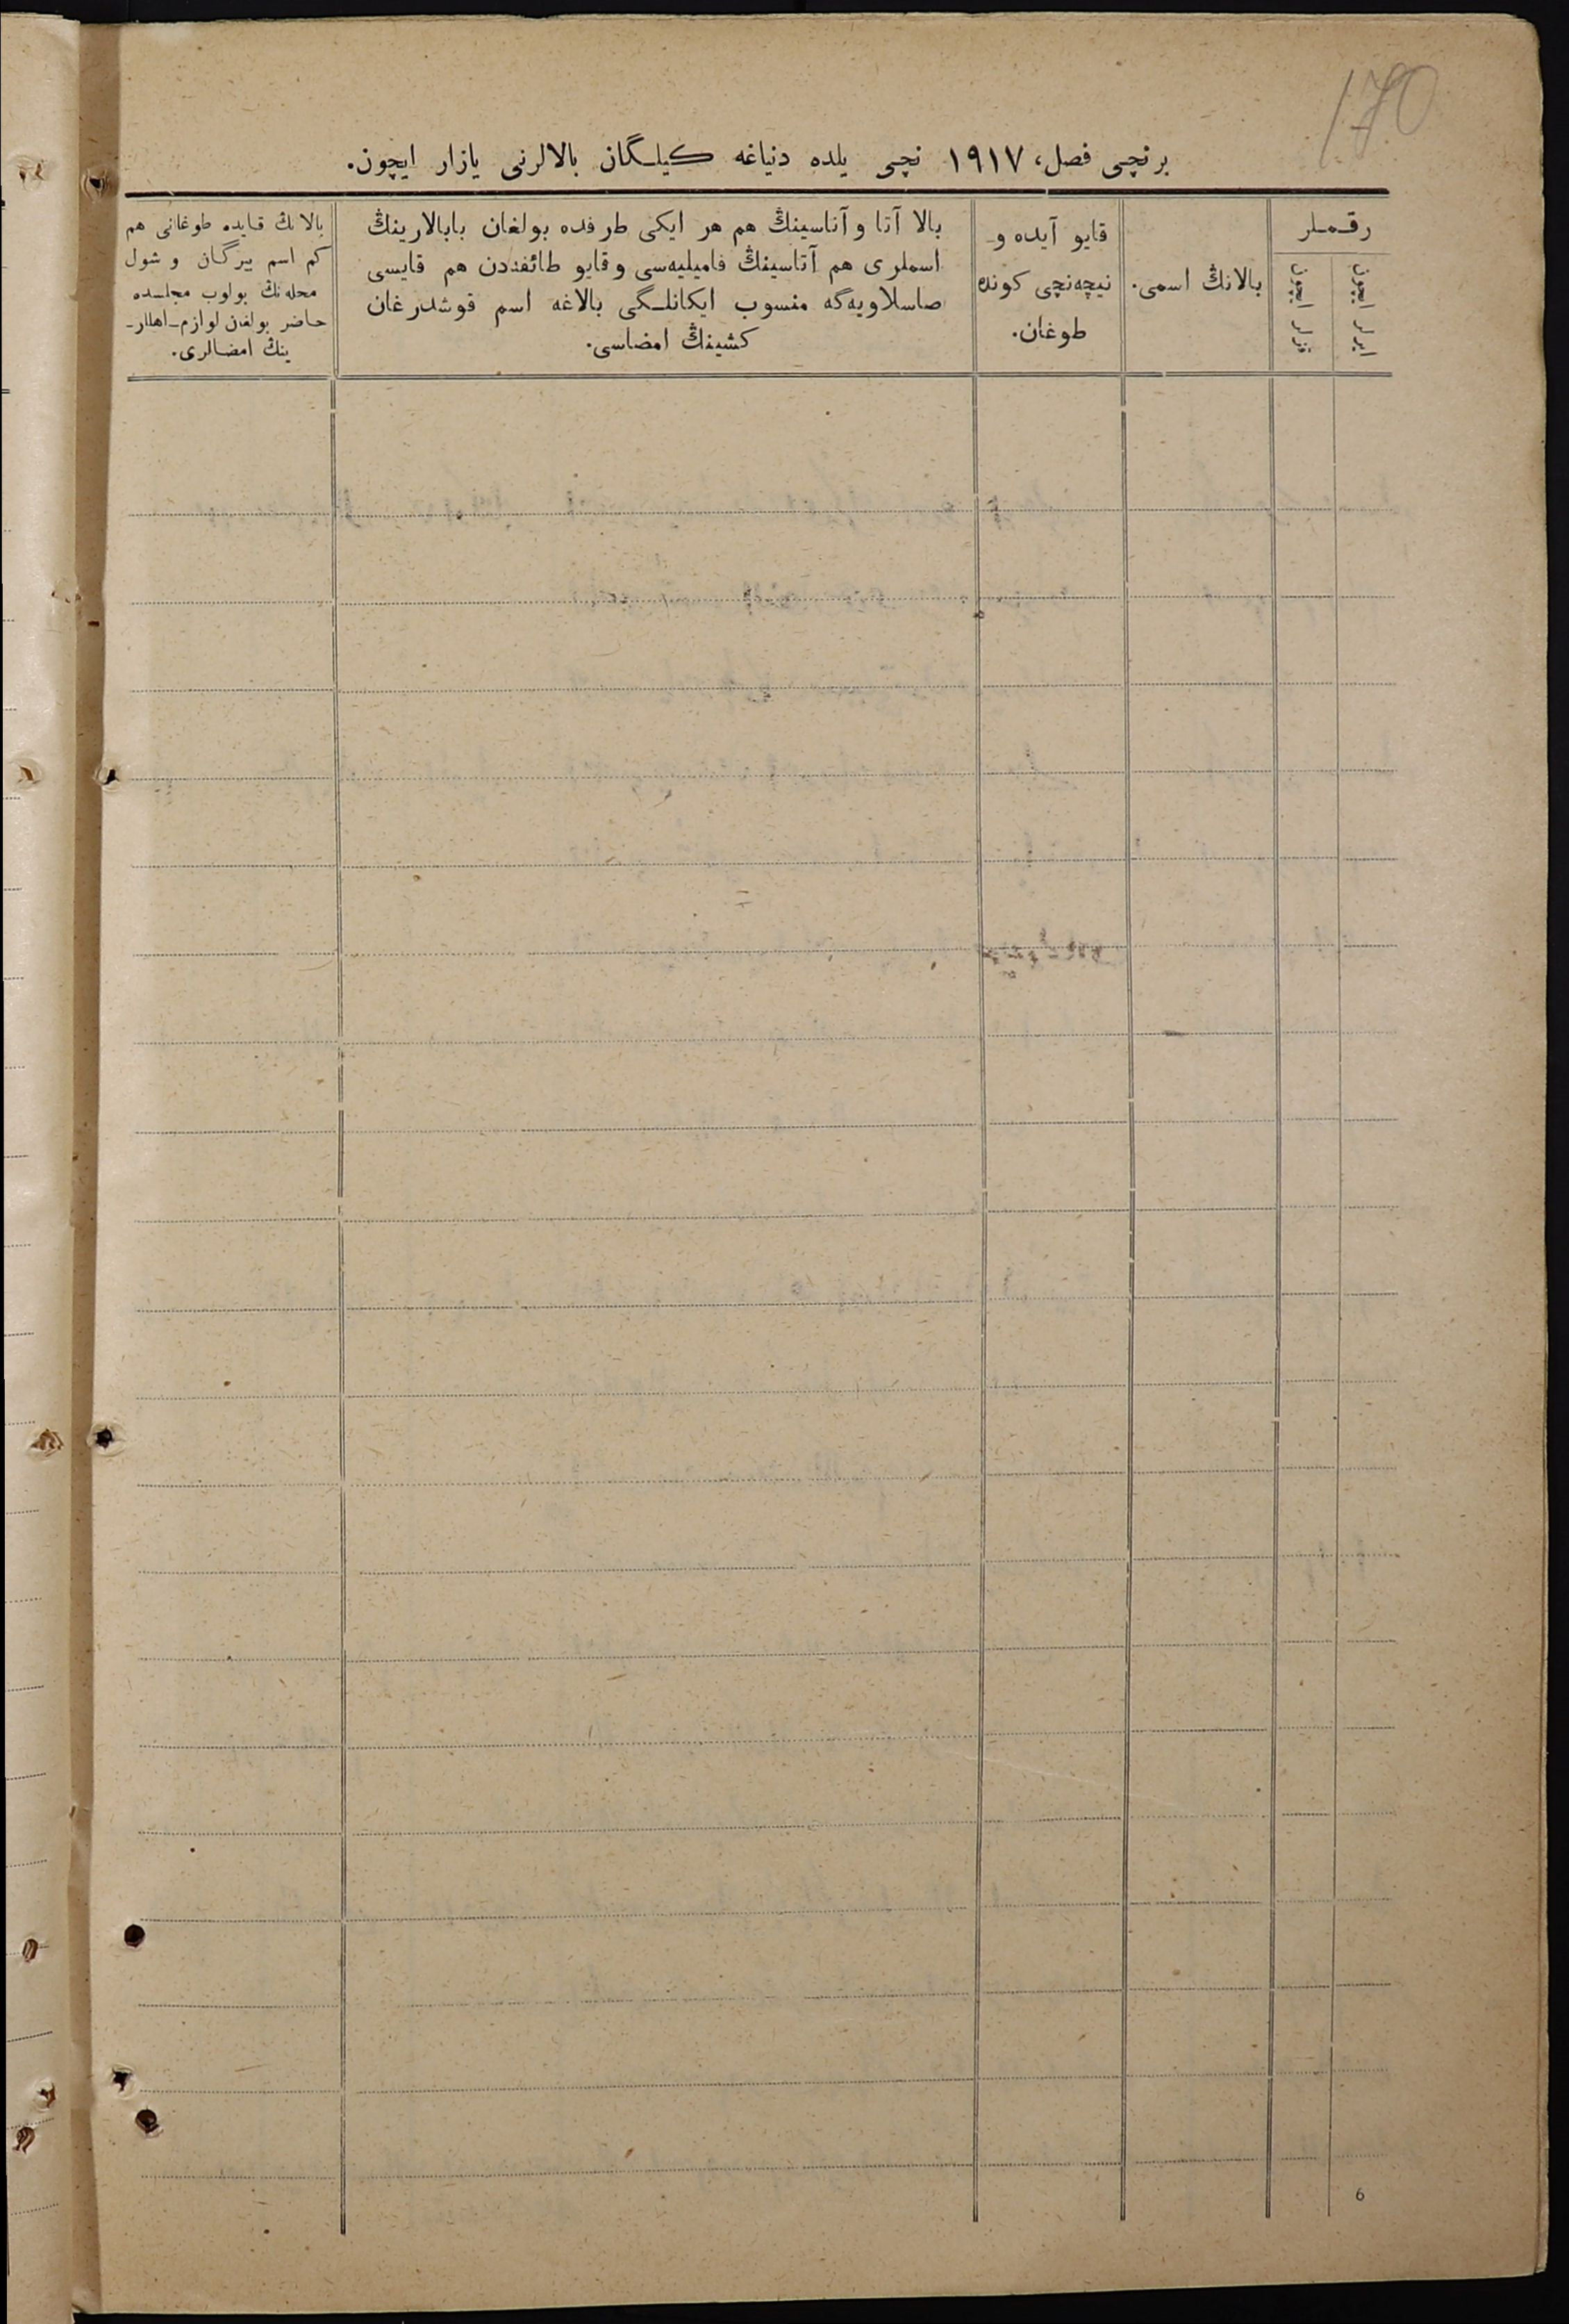 170
برنچی فصل، ١٩١٧ نچی یلده دنیاغه کیلـگان بالالرنی یازار ایچون.
رقـمـلر
ایرلر ایچون
قزلر ایچون
بالانڭ اسمی.
قایو آیده و ـ
نیچه‌نچی کونده
طوغان.
بالا آتا و آناسینڭ هم هر ایکی طرفده بولغان بابالارینڭ
اسملری هم آتاسینڭ فامیلیه‌سی و قایو طائفه‌دن هم قایسی
صاسلاویه‌گه منسوب ایکانلـگی بالاغه اسم قوشدرغان
کشینڭ امضاسی.
بالانڭ قـایده طوغانی هم
کم اسم بیرگـان و شول
محله‌نڭ بولوب مجلـسده
حـاضر بولغان لوازم ـ اهللر ـ
ینڭ امضـالری.
6